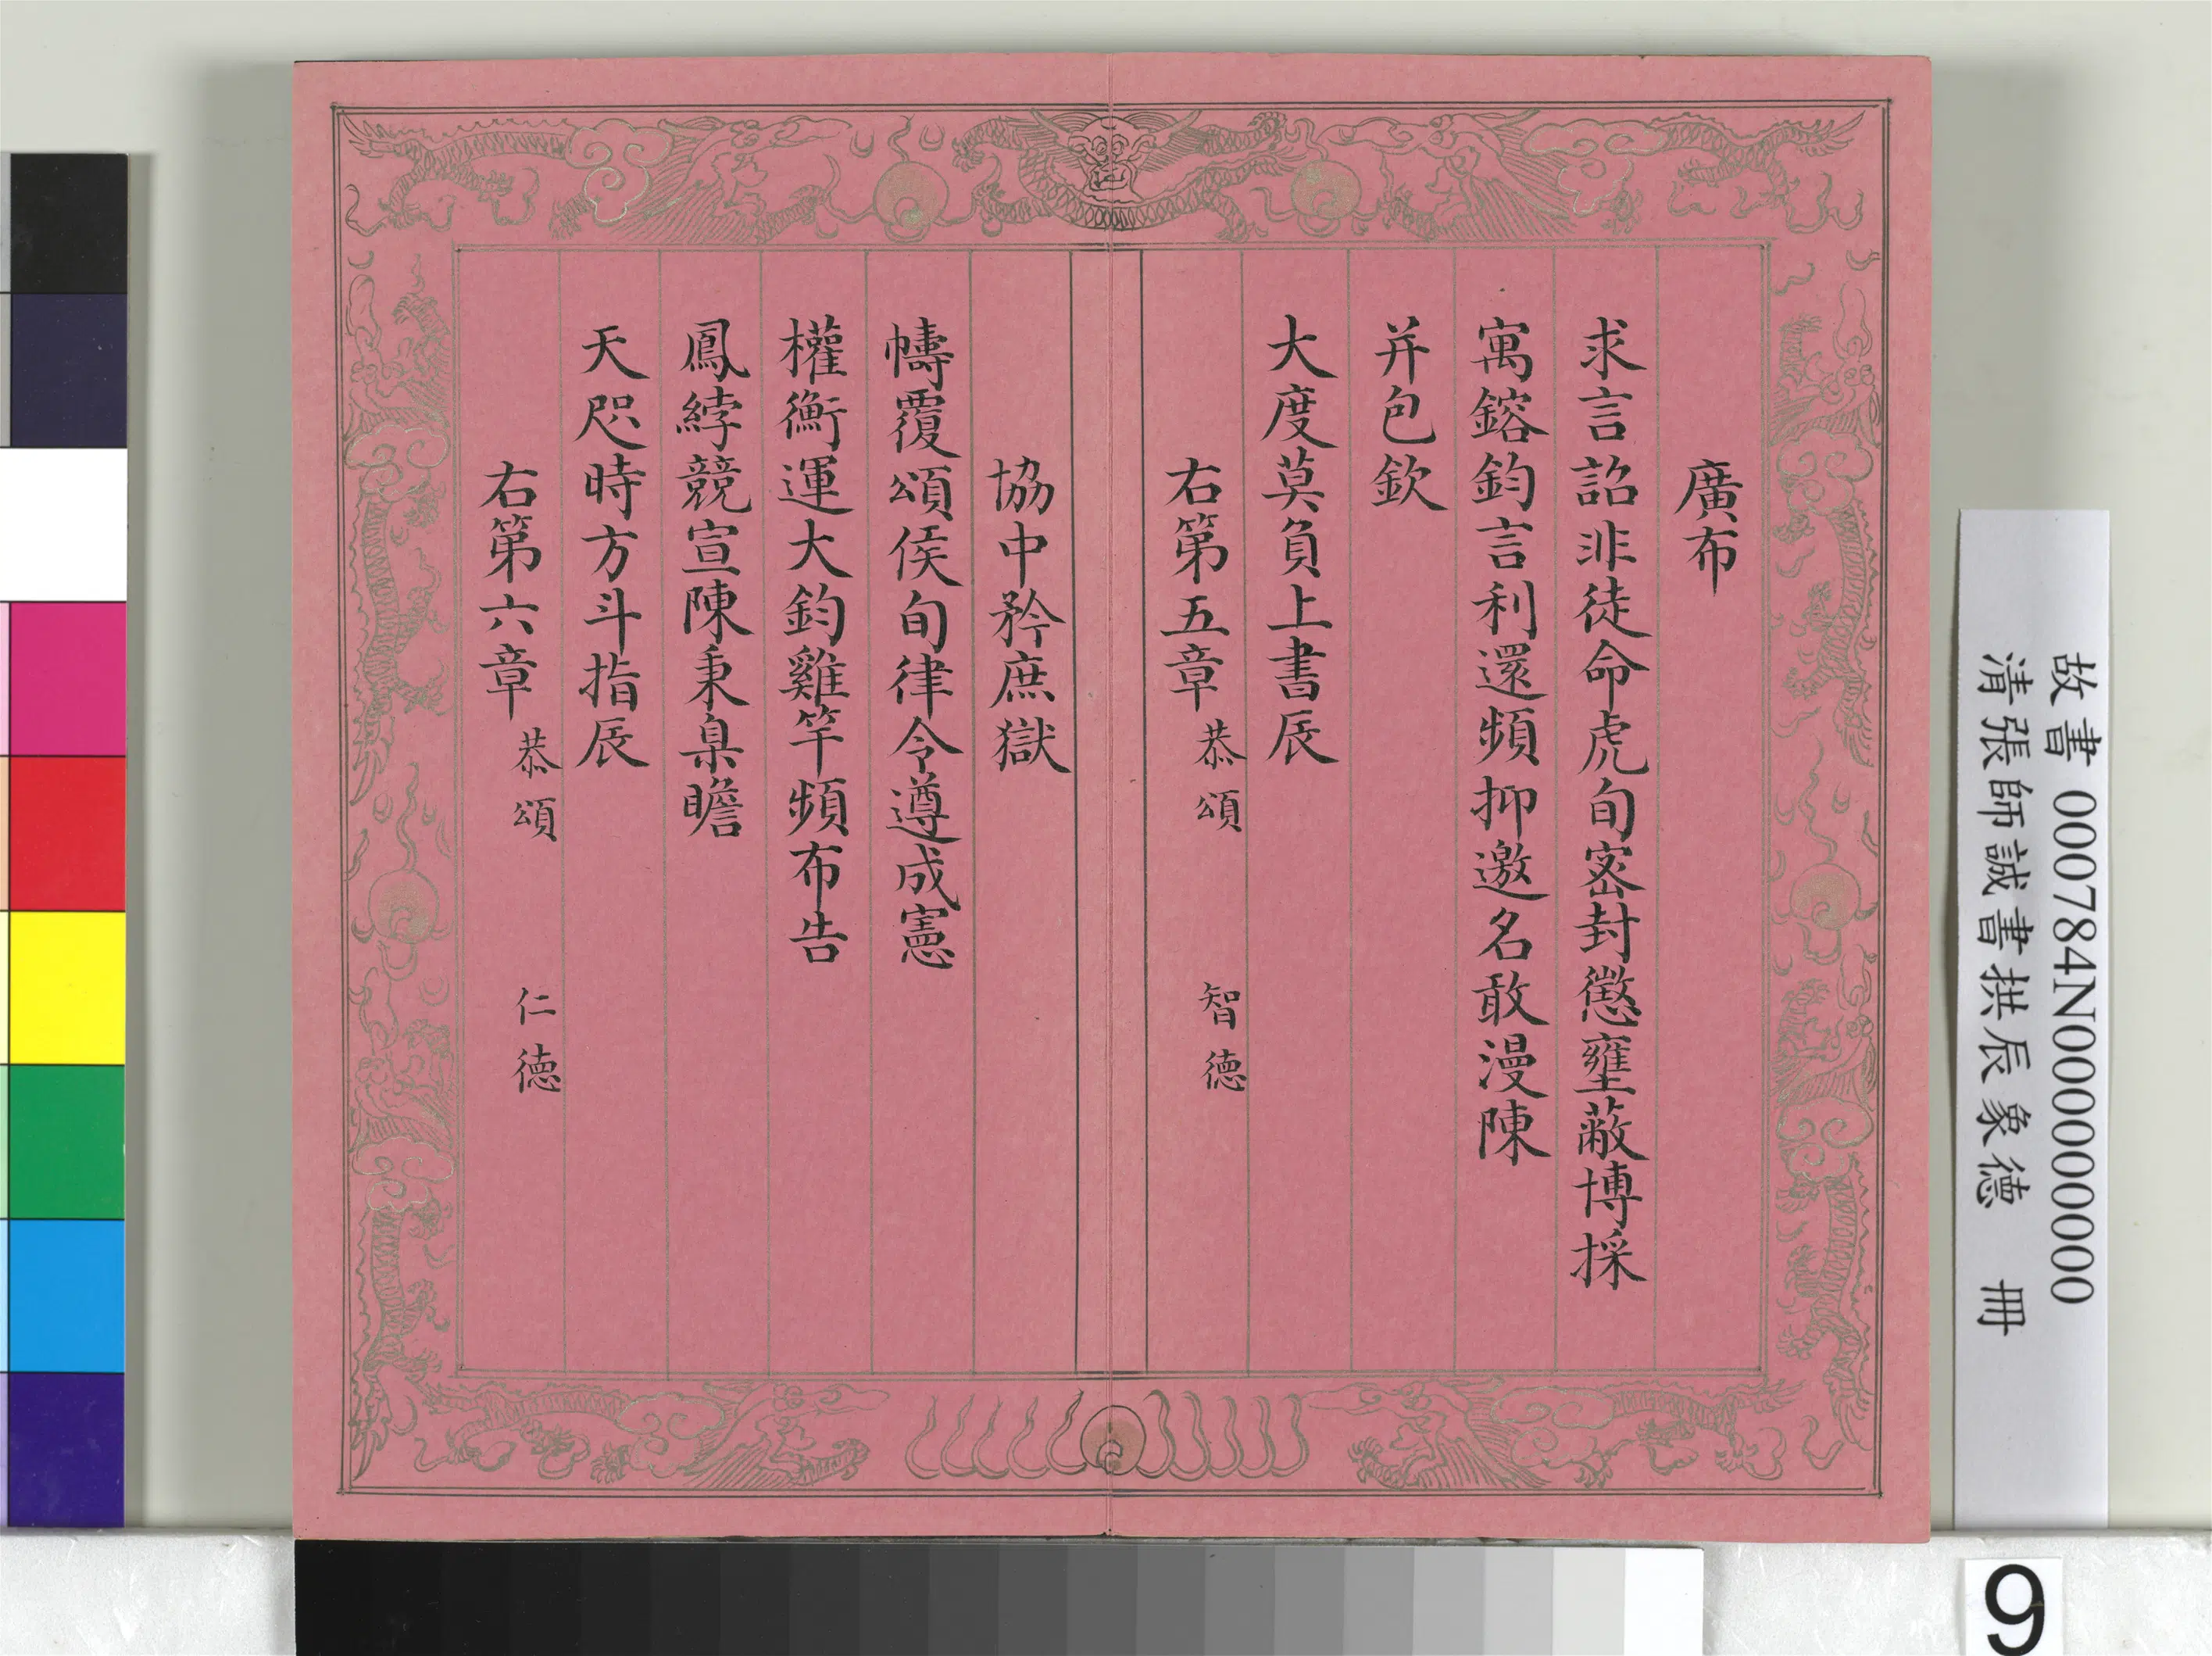 廣布
求言詔非徒命虎旬密封懲壅蔽博採
寓鎔鈞言利還頻抑邀名敢漫陳
并包欽
大度莫負上書辰
右第五章 恭頌 智德
協中矜庶獄
幬覆頌侯旬律令遵成憲
權衡運大鈞雞竿頻布告
鳳綍競宣陳秉臬瞻
天咫時方斗指辰
右第六章 恭頌 仁德
故書 000784N000000000
清張師誠書拱辰象德 冊
9